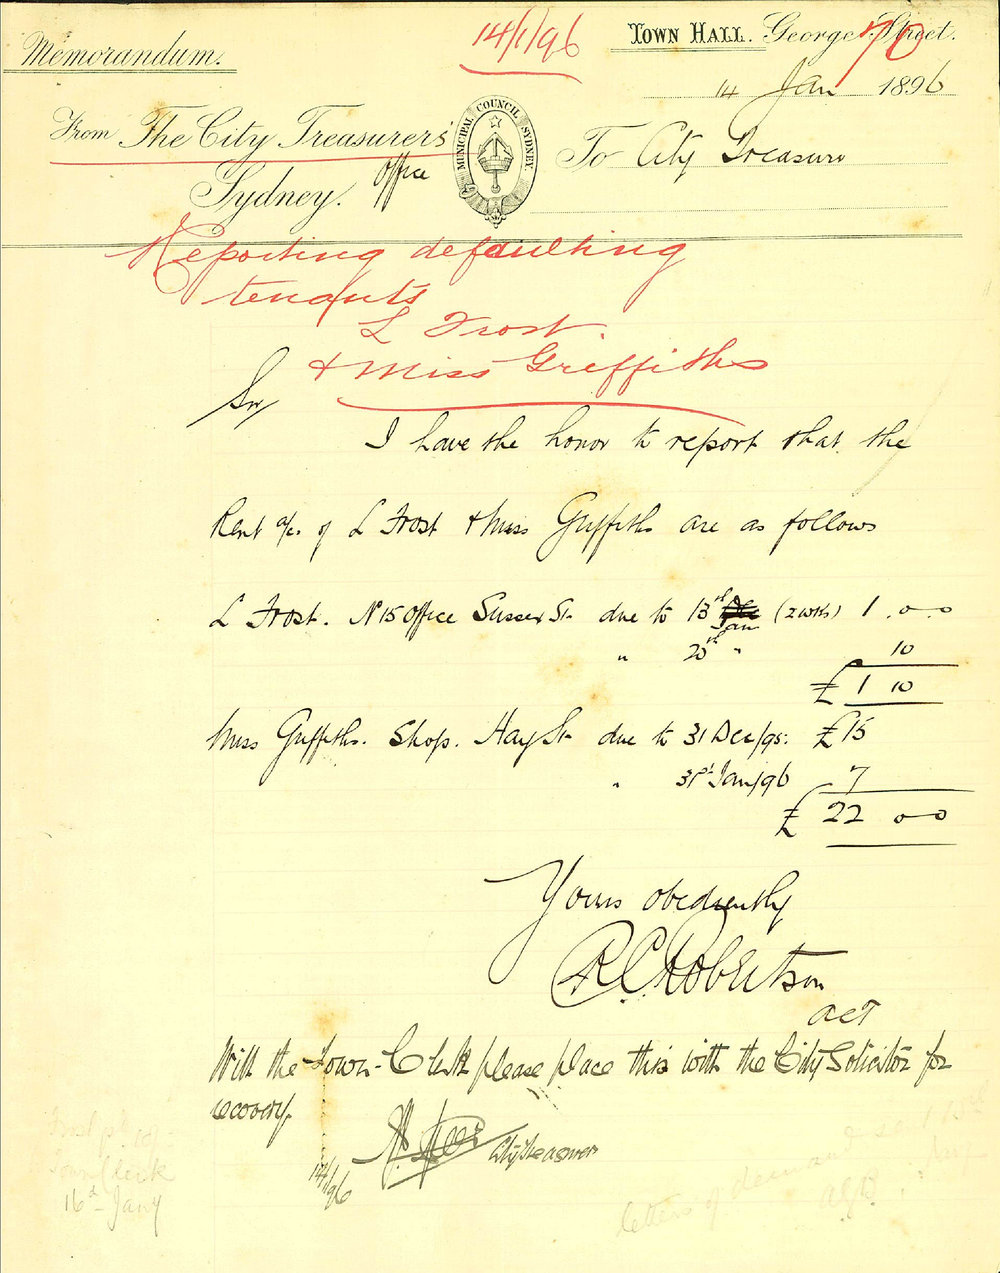 Memorandum.
14/1/96
TOWN HALL. George Street.
70
14 Jan 1896
From The City Treasurers'
Office
Sydney.
MUNICIPAL COUNCIL SYDNEY.
To City Treasurer
Reporting defaulting
tenants
L Frost
& Miss Griffiths
Sir,
I have the honor to report that the
Rent a/cs of L Frost & Miss Griffiths are as follows
L Frost. No 15 Office Sussex St due to 13th Jan (2 wks) 1 . 0 - 0
" 20th " 10
£ 1 10
Miss Griffiths. Shop. Hay St due to 31 Dec/95. £15
" 31st Jan/96 7
£ 22 0 - 0
Yours obediently
R. C. Robertson
ACT
Will the Town-Clerk please place this with the City Solicitor for
recovery.
City Treasurer
14/1/96
Town Clerk
16th Jany
letters of demand